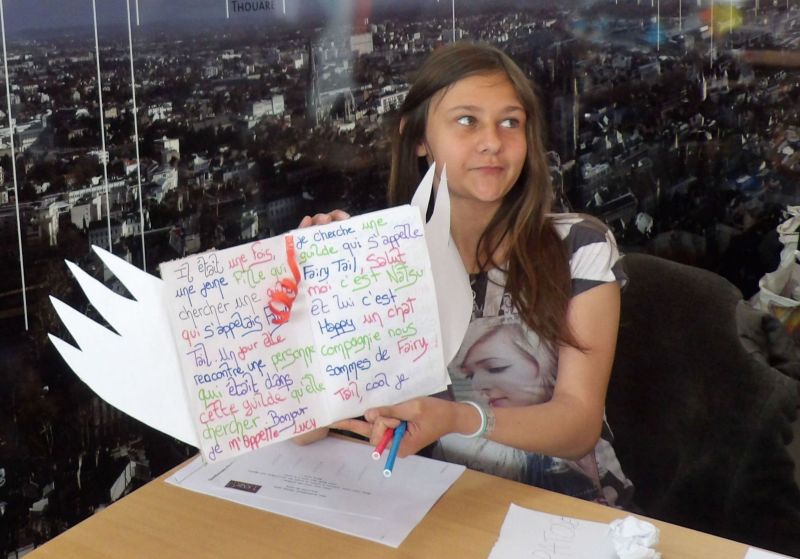 THOUARÉ
Il était une fois,
une jeune fille qui
chercher une
qui s'appelais
Tail. Un jour elle
rencontre une personne
qui était dans
cette guilde qu'elle
chercher. Bonjour
je m'appelle Lucy
je cherche une
guilde qui s'appelle
Fairy Tail, Salut
moi c'est Natsu
et lui c'est
Happy un chat
compagnie nous
sommes de Fairy
Tail, cool je